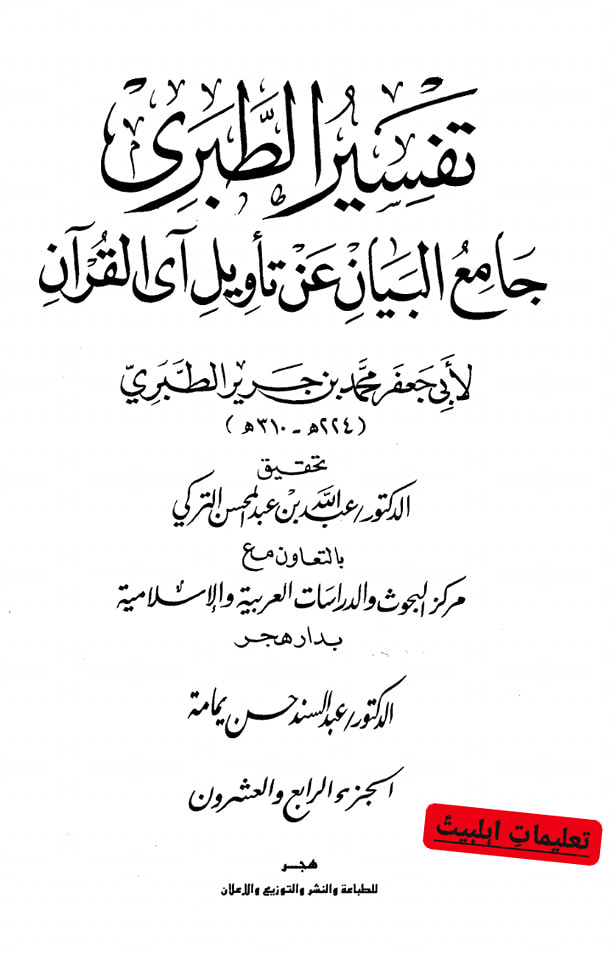 تفسير الطَّبَرِى
جَامِعُ البَيَانِ عَنْ تَأْوِيلِ آىِ القُرْآنِ
لأَبِى جَعفَر محمَّد بن جَرير الطَّبَرِيّ
(٢٢٤هـ - ٣١٠هـ)
تحقيق
الدكتور/ عبد اللَّه بن عبد المحسن التركي
بالتعاون مع
مركز البحوث والدراسات العربية والإسلامية
بدار هجر
الدكتور/ عبد السند حسن يمامة
الجزء الرابع والعشرون
تعليماتِ اہلبیتؑ
هجر
للطباعة والنشر والتوزيع والإعلان